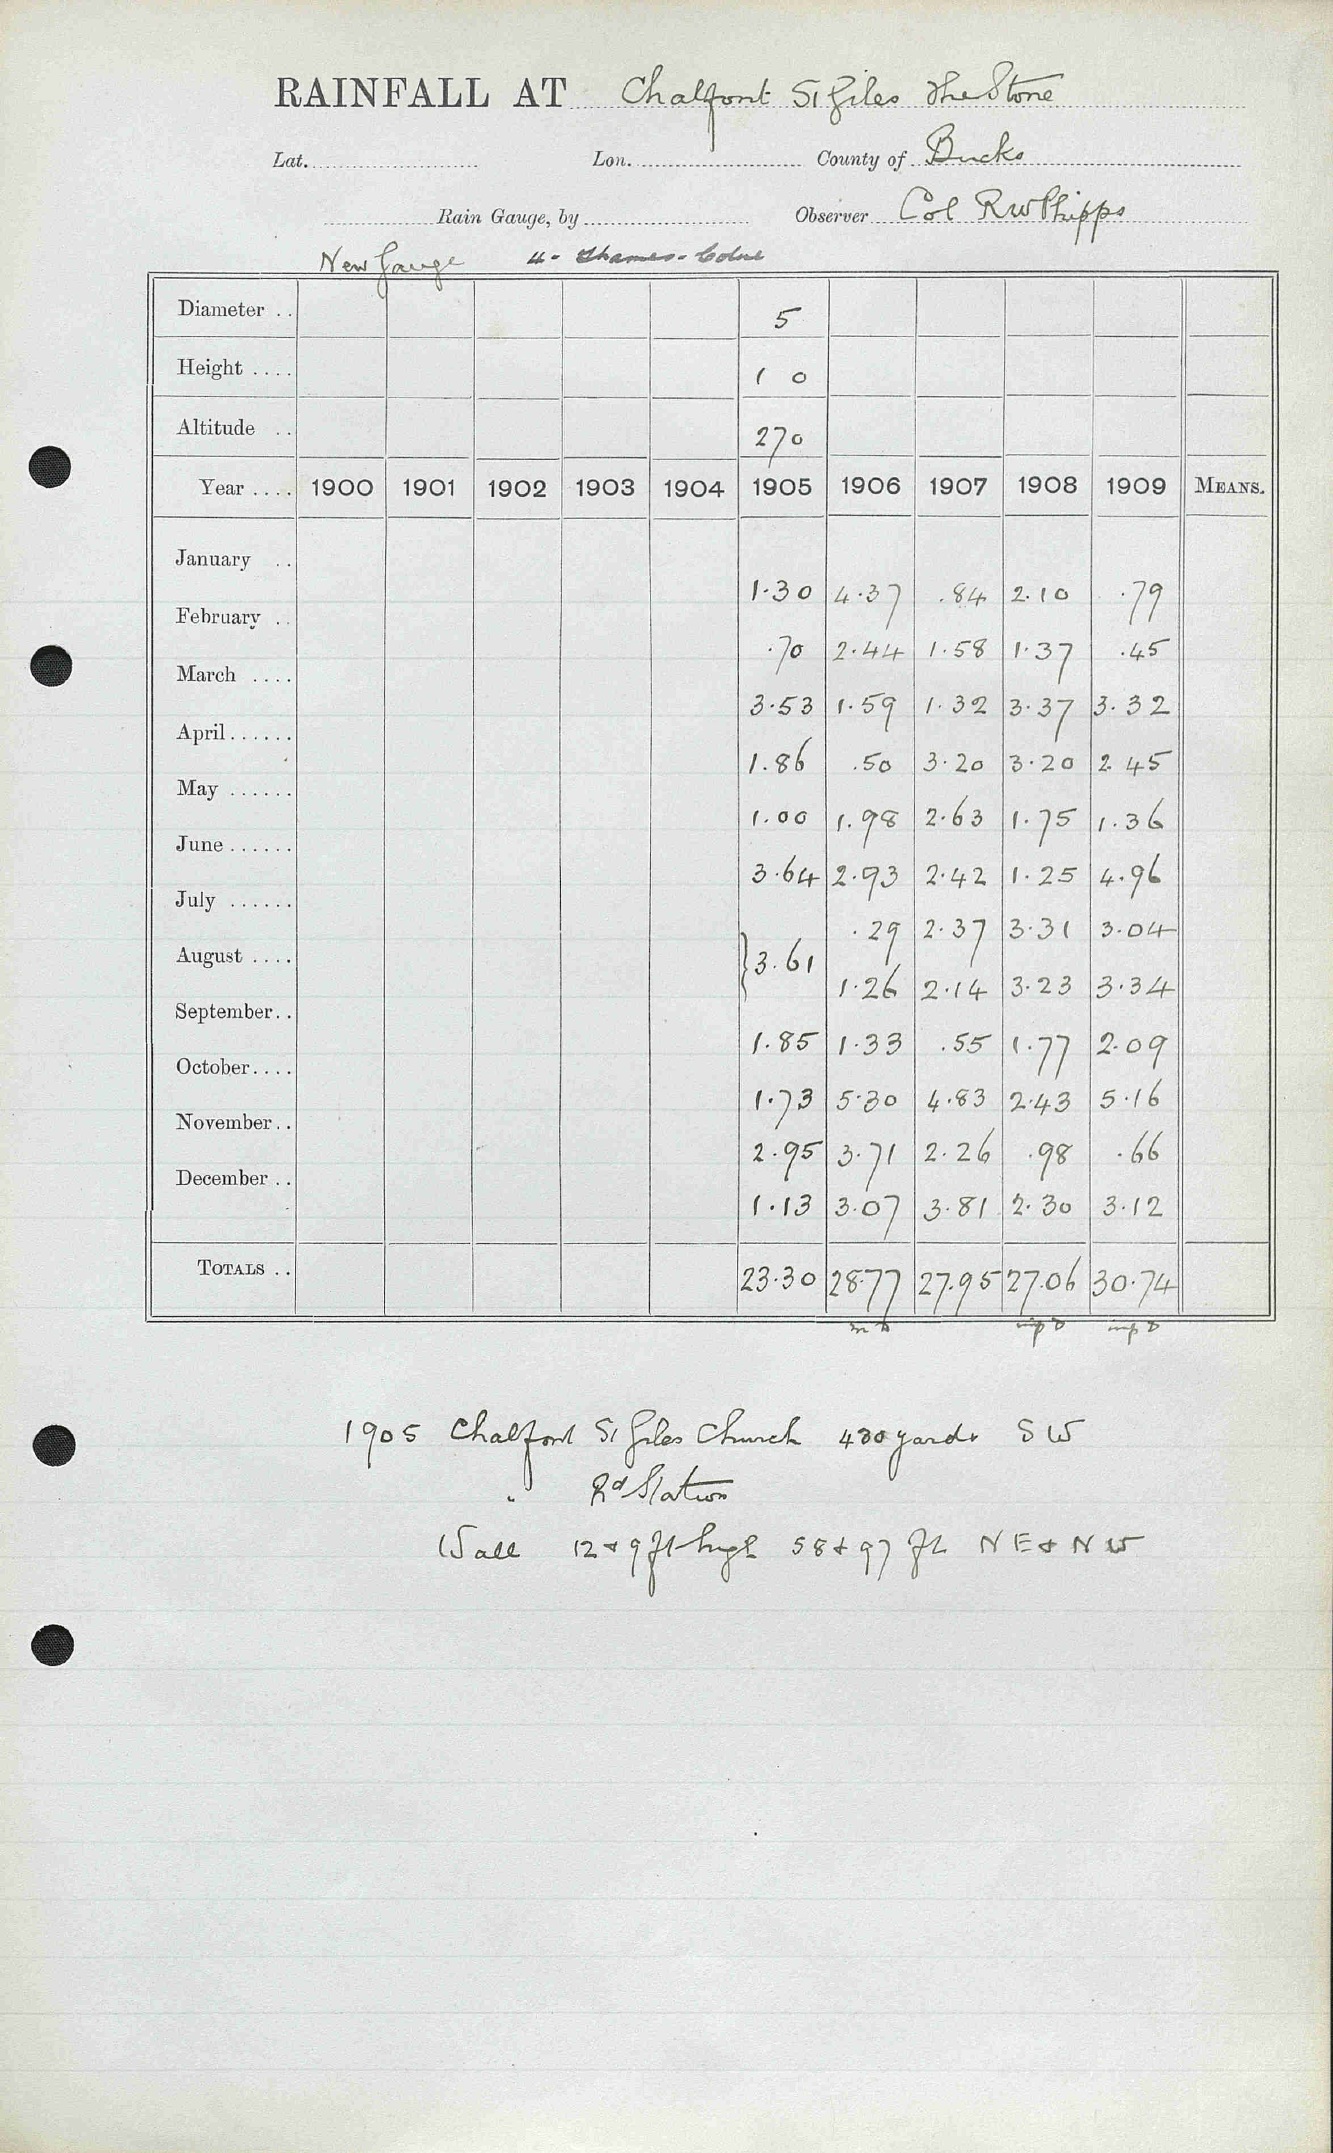 RAINFALL AT Chalfont St Giles The Stone
Lat. Lon. County of Bucks
Rain Gauge, by Observer Col R W Phipps
New Gauge 4 - Thames - Colne
Diameter . . 5
Height . . . . 1 0
Altitude . . 270
Year . . . . 1900 1901 1902 1903 1904 1905 1906 1907 1908 1909 MEANS.
January . . 1.30 4.37 .84 2.10 .79
February . . .70 2.44 1.58 1.37 .45
March . . . . 3.53 1.59 1.32 3.37 3.32
April . . . . . . 1.86 .50 3.20 3.20 2.45
May . . . . . . 1.00 1.98 2.63 1.75 1.36
June . . . . . . 3.64 2.93 2.42 1.25 4.96
July . . . . . . .29 2.37 3.31 3.04
August . . . . } 3.61 1.26 2.14 3.23 3.34
September . . 1.85 1.33 .55 1.77 2.09
October . . . . 1.73 5.30 4.83 2.43 5.16
November . . 2.95 3.71 2.26 .98 .66
December . . 1.13 3.07 3.81 2.30 3.12
TOTALS . . 23.30 28.77 27.95 27.06 30.74
1905 Chalfont St Giles Church 430 yards SW
" Rd Station
Wall 12 & 9 ft high 58 & 97 ft NE & NW